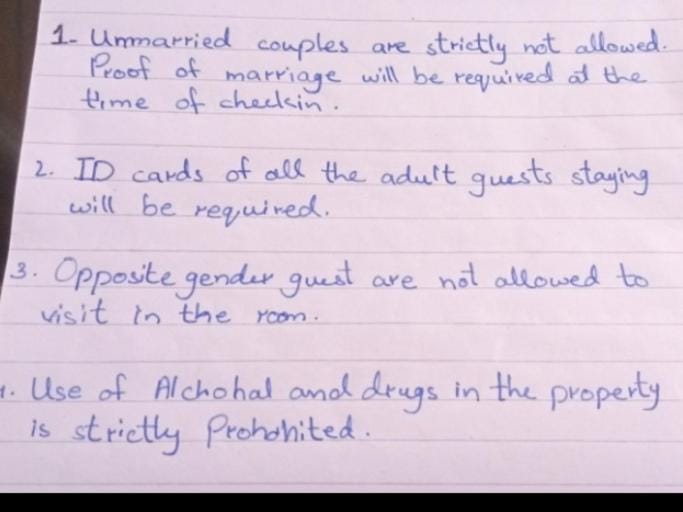 1- Unmarried couples are strictly not allowed.
Proof of marriage will be required at the
time of checkin.
2. ID cards of all the adult guests staying
will be required.
3. Opposite gender guest are not allowed to
visit in the room.
4. Use of Alchohal and drugs in the property
is strictly Prohohited.